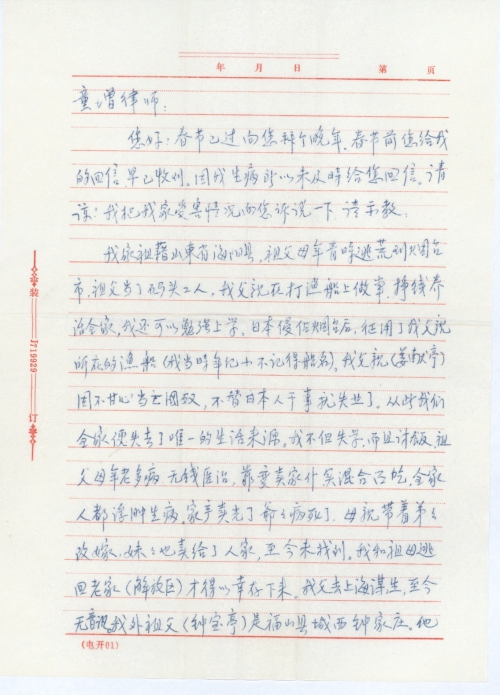 年 月 日 第 页
童增律师:
您好!春节已过向您拜个晚年。春节前您给我
的回信早已收到。因我生病所以未及时给您回信。请
谅!我把我家受害情况向您诉说一下 请示教:
我家祖籍山东省海阳县,祖父母年青时逃荒到烟台
市,祖父当了码头工人,我父亲在打渔船上做事,挣钱养
活全家,我还可以勉强上学。日本侵佔烟台后,征用了我父亲
所在的渔船(我当时年纪小不记得船名),我父亲(姜 亭)
因不甘心当亡国奴,不替日本人干事就失业了。从此我们
全家便失去了唯一的生活来源。我不但失学,而且讨饭,祖
父母年老多病 无钱医治,靠变卖家什 混合 吃,全家
人都浮肿生病,家产卖光了爷爷病死了。母亲带着弟弟
改嫁,妹妹也卖给了人家,至今未找到。我和祖母逃
回老家(解放区)才得以幸存下来。我父去上海谋生,至今
无音讯。我外祖父(钟宝亭)是福山县城西钟家庄。他
装 J719929 订
(电开01)